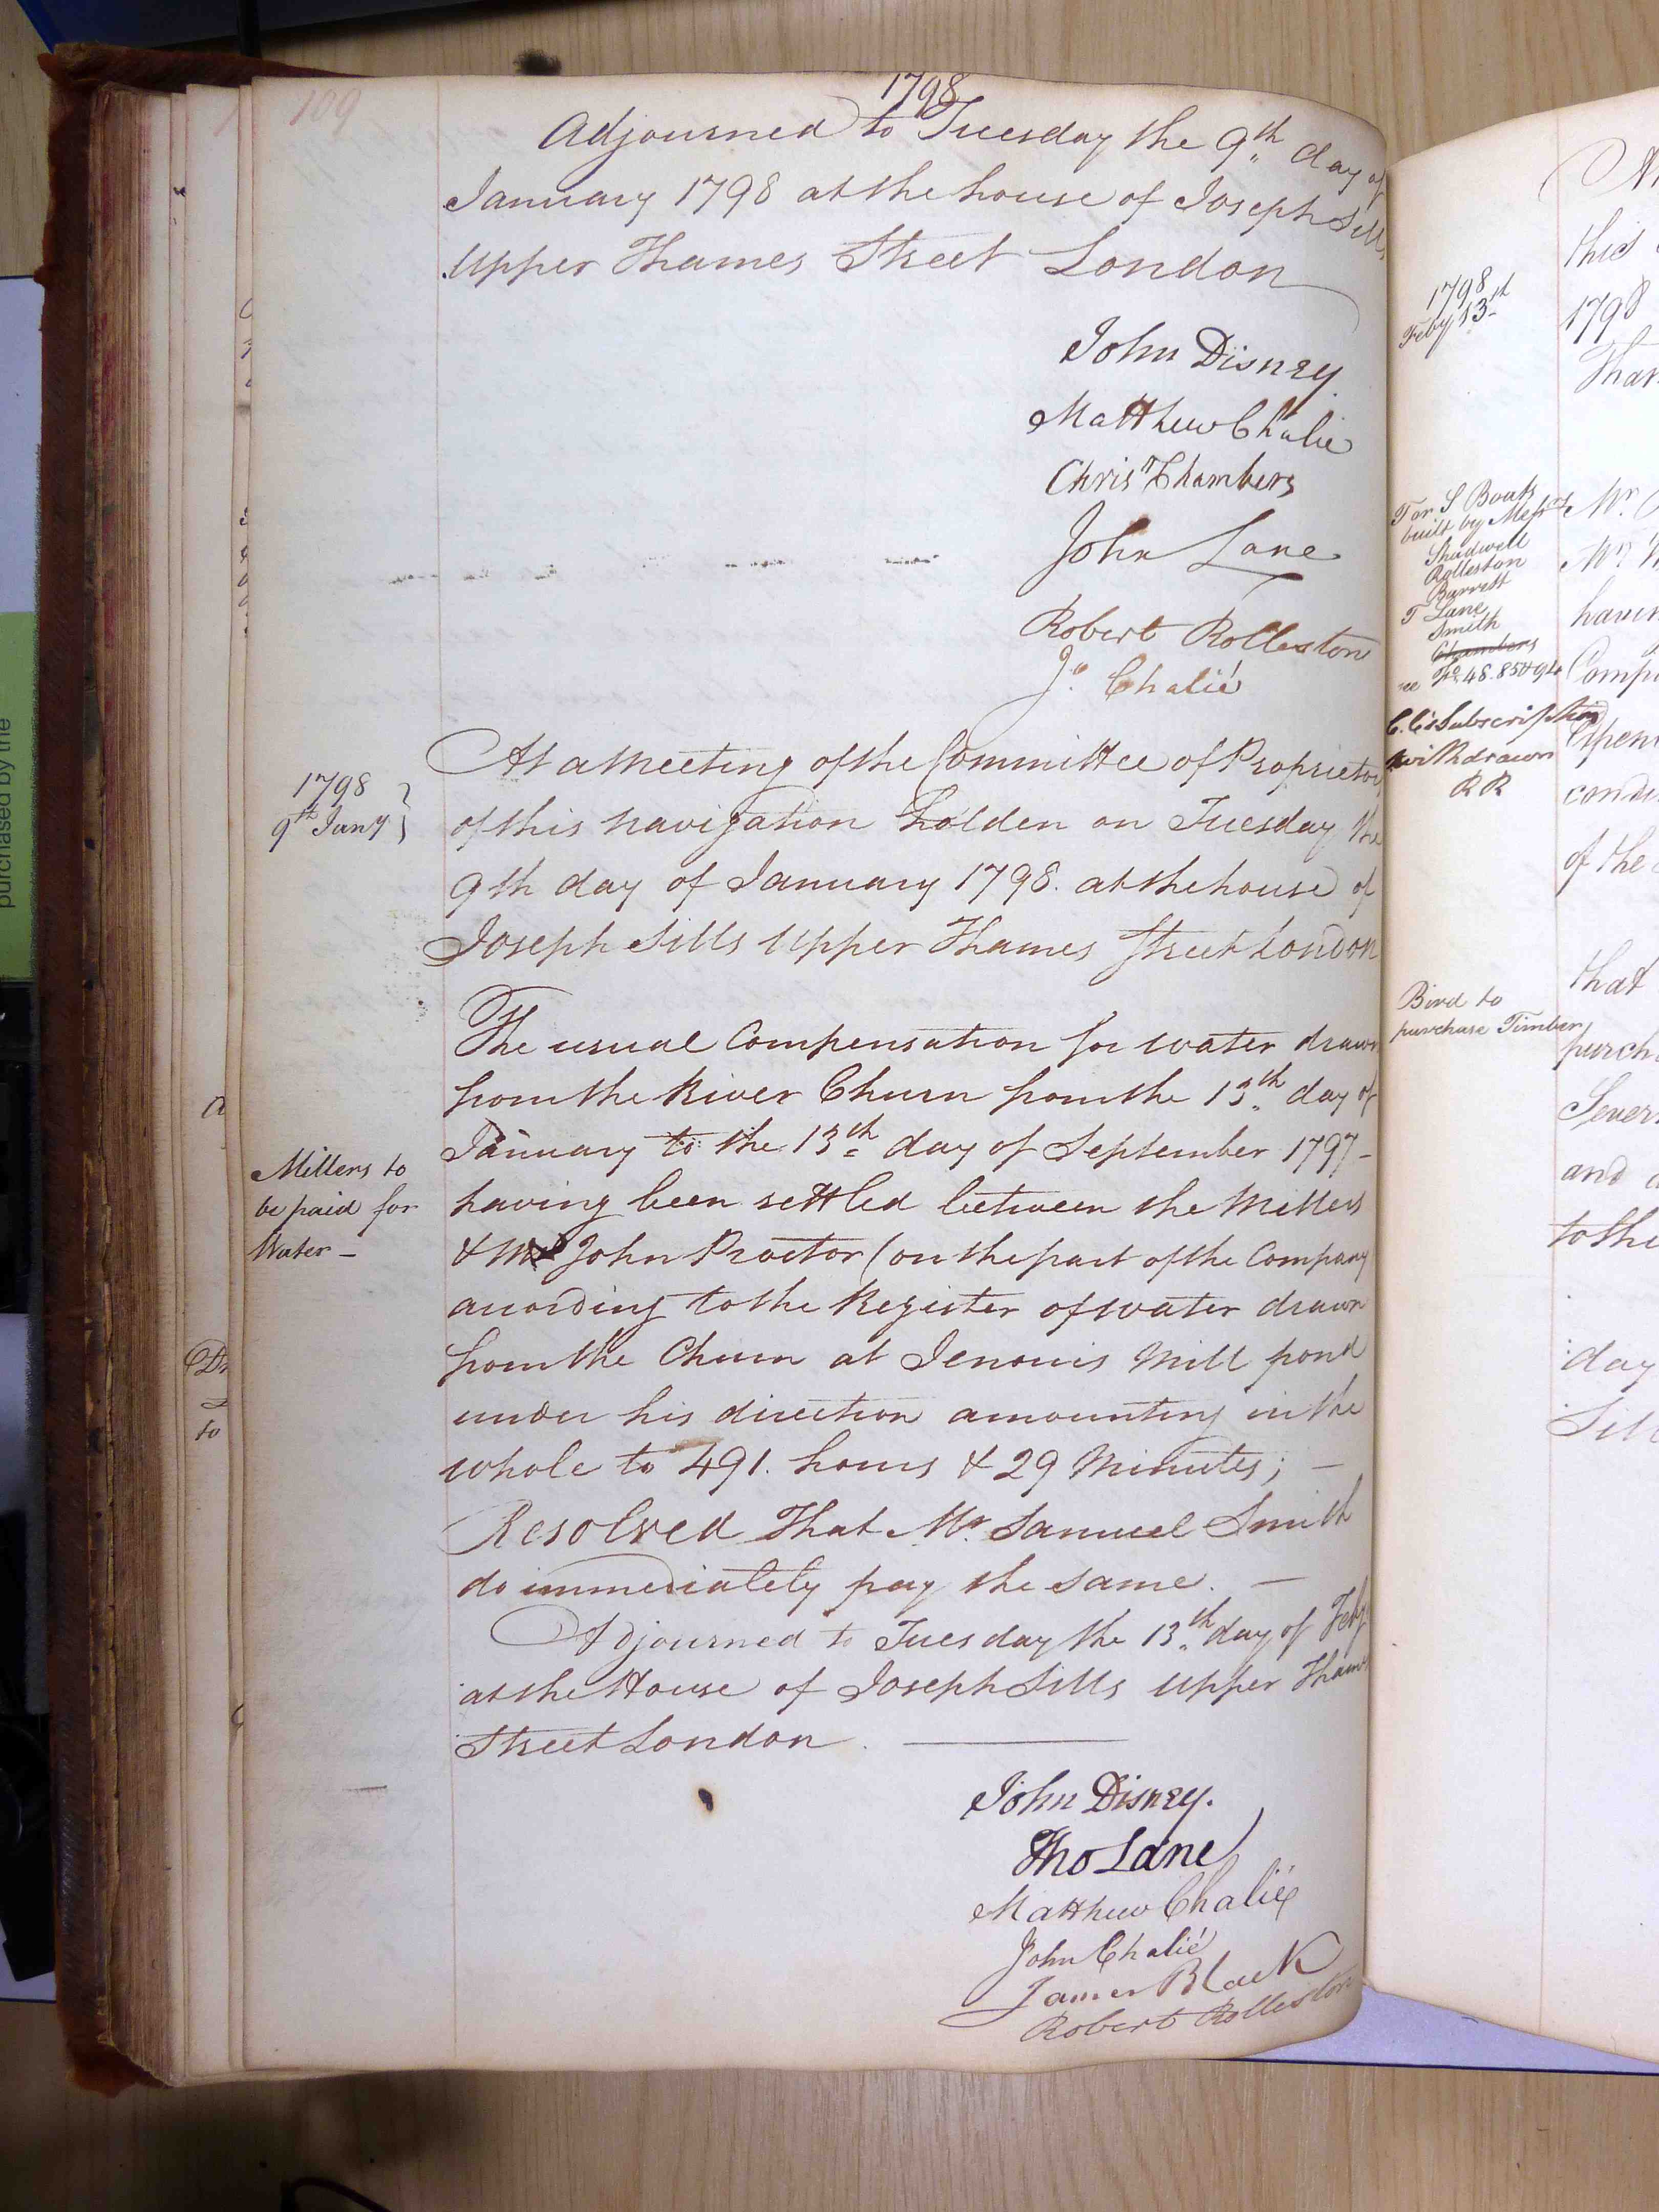 109
1798
Adjourned to Tuesday the 9th day of
January 1798 at the house of Joseph Sills
Upper Thames Street London
John Disney
Matthew Chalié
Chrisr Chambers
John Lane
Robert Rolleston
Jo. Chalié
1798
9th Jany
At a Meeting of the Committee of Proprietors
of this Navigation holden on Tuesday the
9th day of January 1798. at the house of
Joseph Sills Upper Thames Street London
The usual Compensation for water drawn
from the River Churn from the 13th day of
January to the 13th day of September 1797 –
Millers to
be paid for
Water –
having been settled between the Millers
& Mr John Proctor (on the part of the Company
according to the Register of water drawn
from the Churn at Jenours Mill pond
under his direction amounting in the
whole to 491. hours & 29 Minutes; –
Resolved That Mr. Samuel Smith
do immediately pay the same. –
Adjourned to Tuesday the 13th day of Feby
at the House of Joseph Sills Upper Thames
Street London.
John Disney.
Tho Lane
Matthew Chalié
John Chalié
James Black
Robert Rolleston
1798
Feby 13th
For S Boats
built by Messrs
Shadwell
Rolleston
Barrett
T Lane
Smith
Chambers
C. Cs Subscription
withdrawn
RR
Bird to
purchase Timber
this
1798
Mr.
Mr.
of the
that
and
to the
day
purchased by the